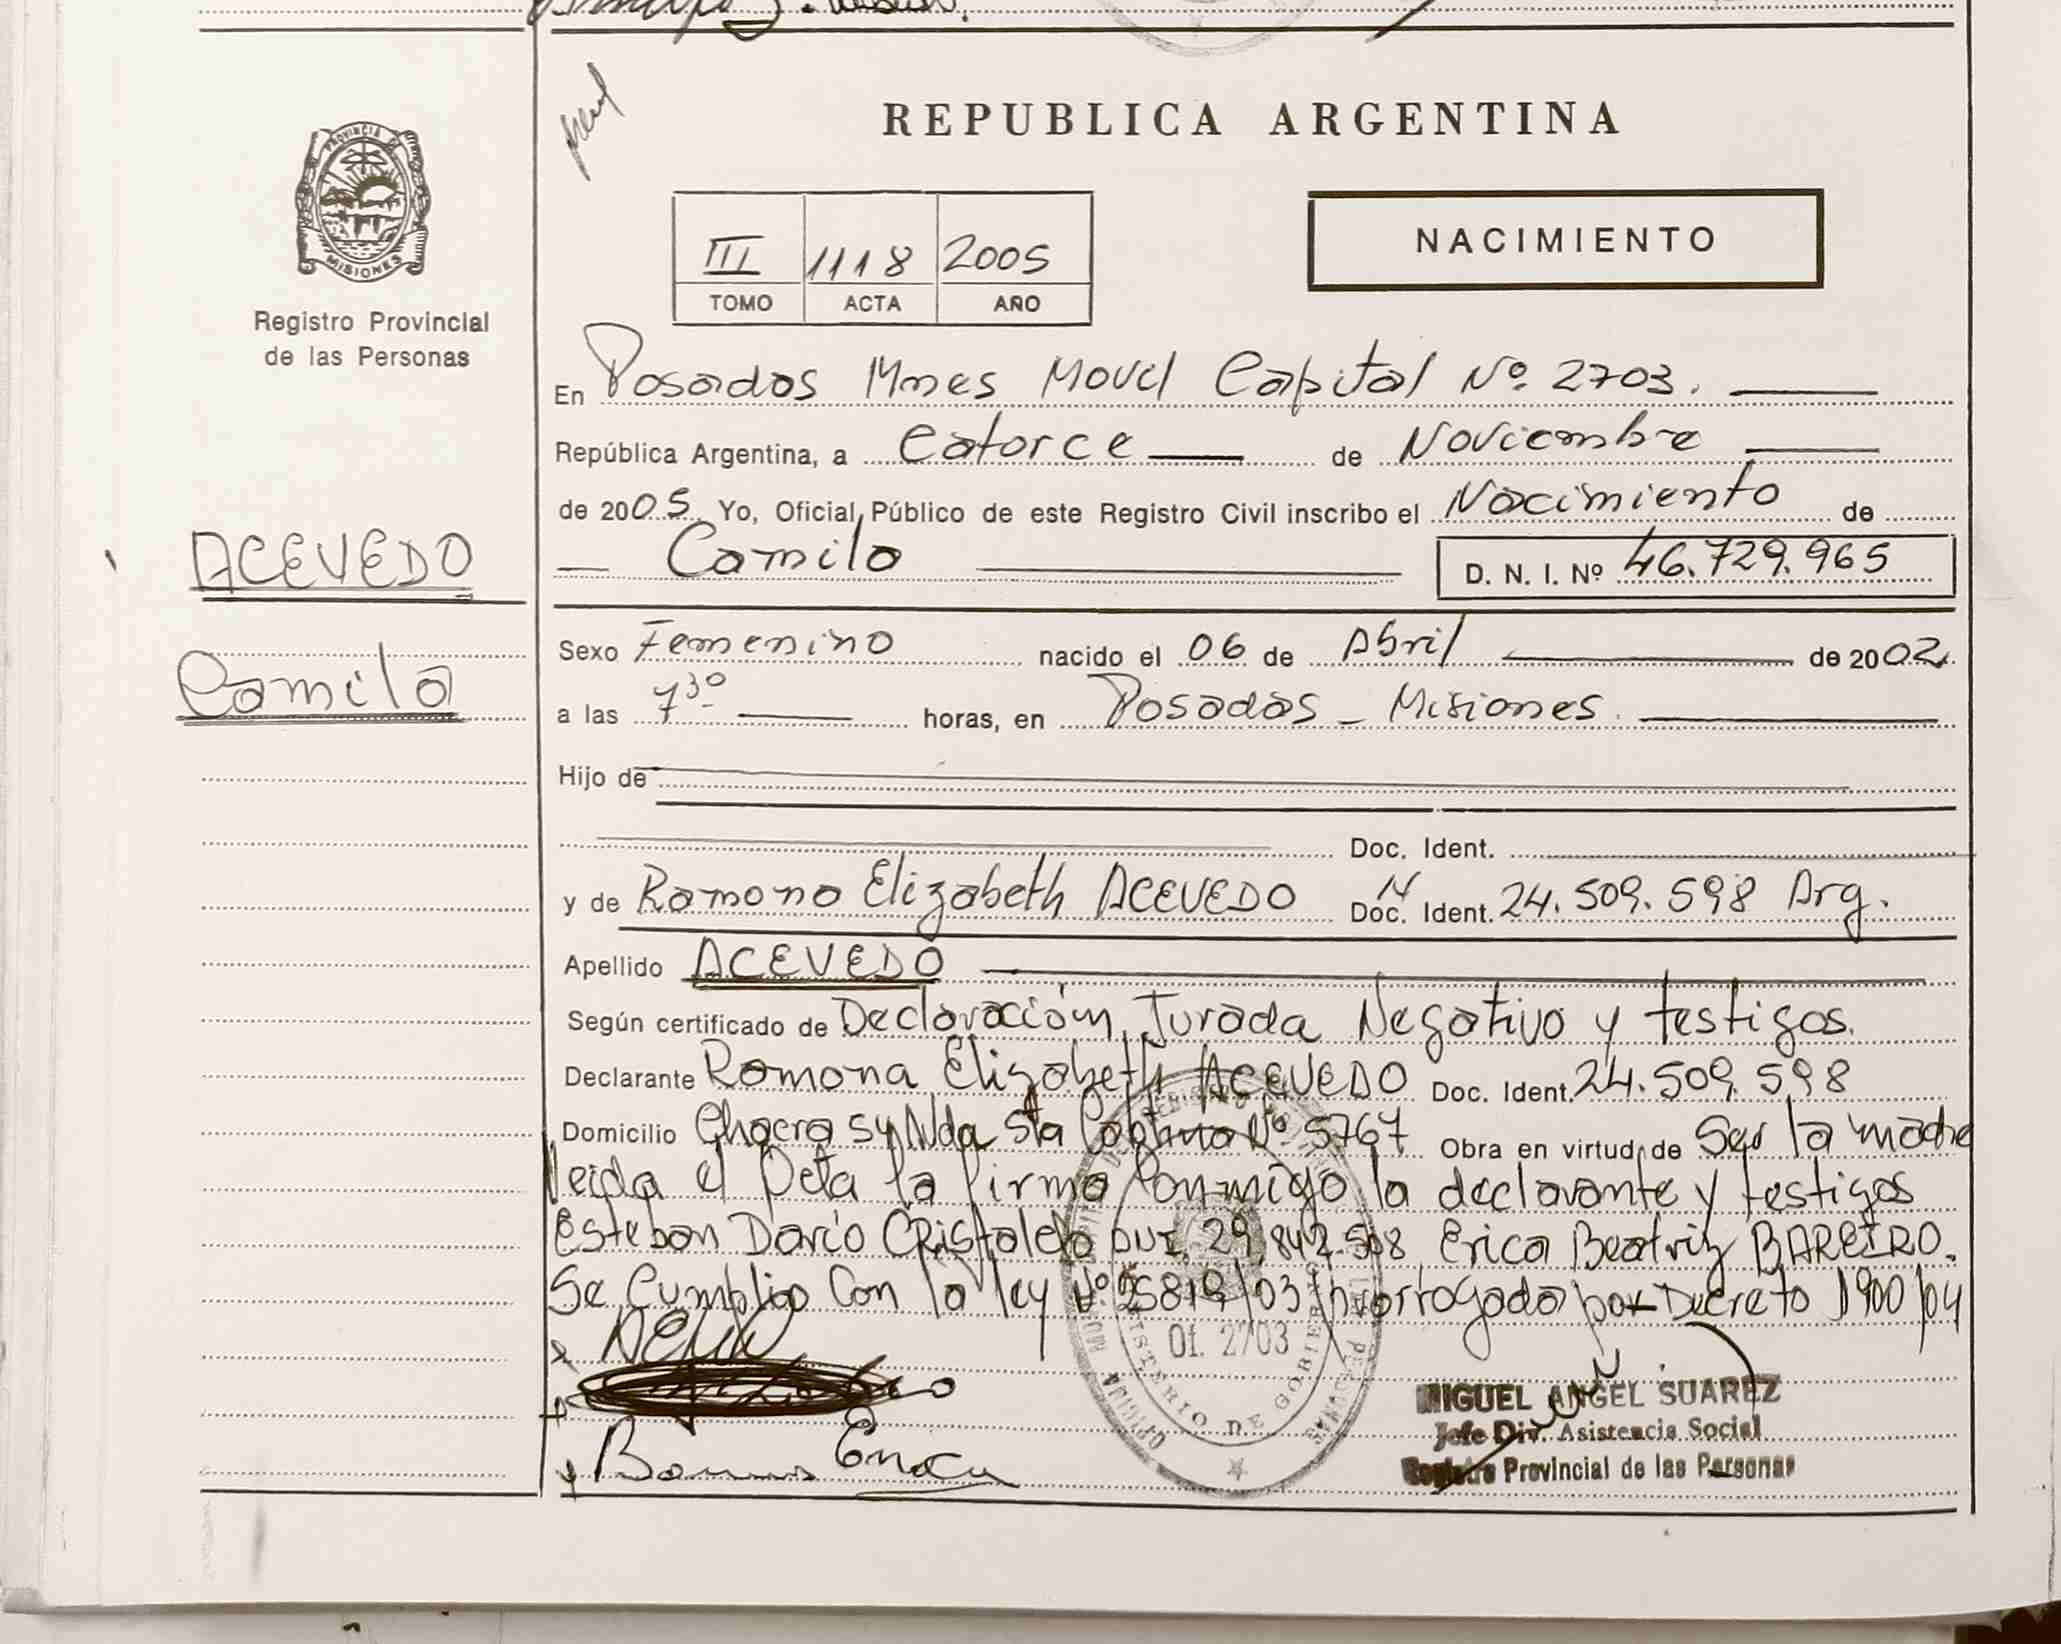 PROVINCIA DE
MISIONES
Registro Provincial
de las Personas
ACEVEDO
Camila
REPUBLICA ARGENTINA
III 1118 2005
TOMO ACTA AÑO
NACIMIENTO
En Posadas Mnes Movil Capital Nº 2703.
República Argentina, a Catorce de Noviembre
de 2005 Yo, Oficial Público de este Registro Civil inscribo el Nacimiento de
Camila D. N. I. Nº 46.729.965
Sexo Femenino nacido el 06 de Abril de 2002
a las 7 30 horas, en Posadas - Misiones.
Hijo de
Doc. Ident.
y de Ramona Elizabeth ACEVEDO Doc. Ident. 24.509.598 Arg.
Apellido ACEVEDO
Según certificado de Declaración Jurada Negativo y testigos.
Declarante Ramona Elizabeth ACEVEDO Doc. Ident. 24.509.598
Domicilio Chacra Nº 5767 Obra en virtud de Ser la madre
leida el Acta la firma conmigo la declarante y testigos
Esteban Dario Cristaldo 29.842.508 Erica Beatriz BAREIRO.
Se Cumplio Con la ley Nº 25819/03 prorrogada por Decreto 1900/04
Of. 2703
MINISTERIO DE GOBIERNO
MIGUEL ANGEL SUAREZ
Jefe Div. Asistencia Social
Registro Provincial de las Personas